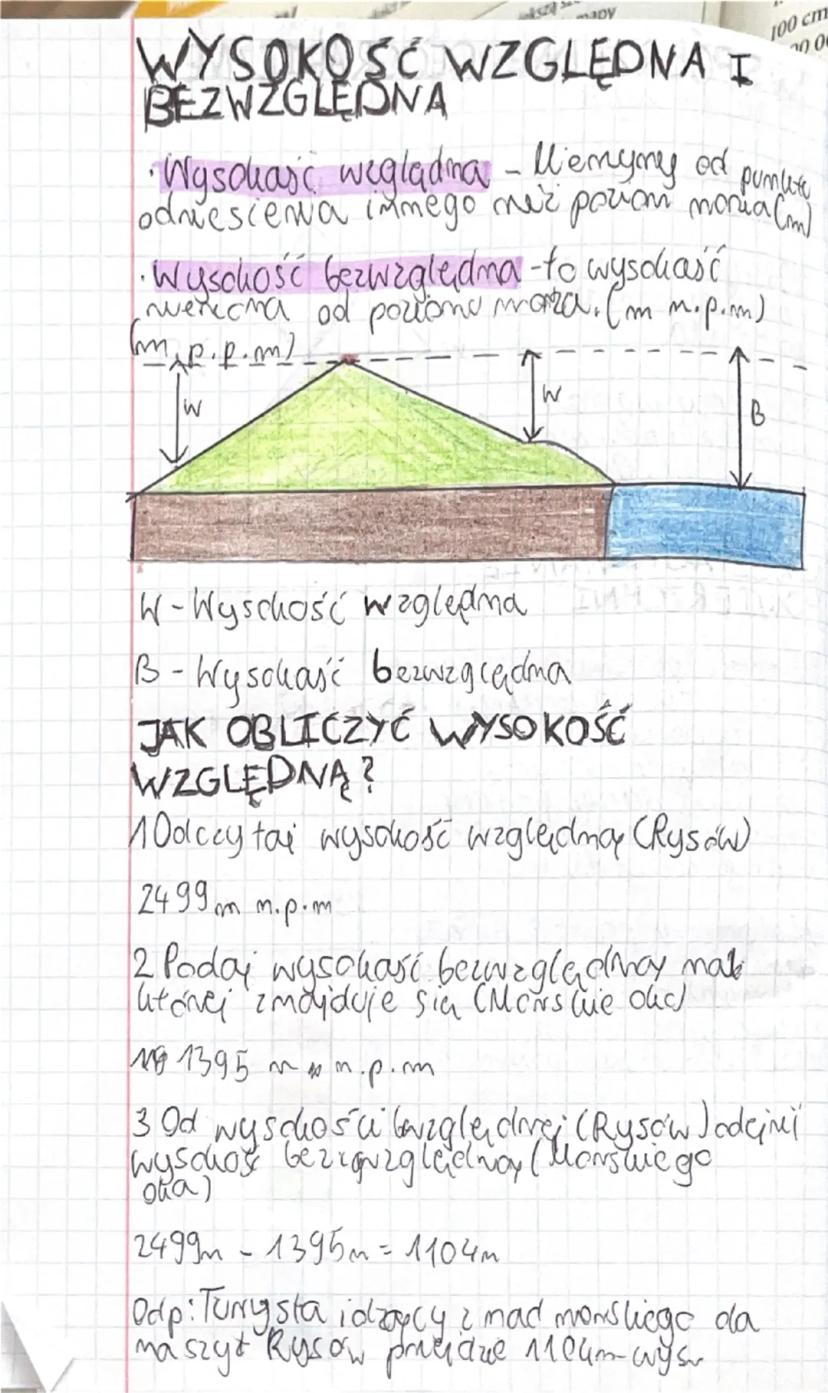 100 cm
mapy
WYSOKOŚĆ WZGLĘDNA I
BEZWZGLĘDNA
· Wysokość względna - Mierzymy od punktu
odniesienia innego niż poziom morza (m)
· Wysokość bezwzględna - to wysokość
od poziomu morza. (m n.p.m)
(m p.p.m)
W W B
W - Wysokość względna
B - Wysokość bezwzględna
JAK OBLICZYĆ WYSOKOŚĆ
WZGLĘDNĄ?
1 Odczytaj wysokość względną (Rysów)
2499 m n.p.m
2 Podaj wysokość bezwzględnoy nad
której znajduje się (Morskie oko)
1395 m n.p.m
3 Od wysokości bwzględnej (Rysów) odejmij
wysokość bezwzględnoy (Morskiego
oka)
2499m - 1395m = 1104m
Odp: Turysta idący z nad morskiego oka
na szyt Rysów przejdzie 1104m wys